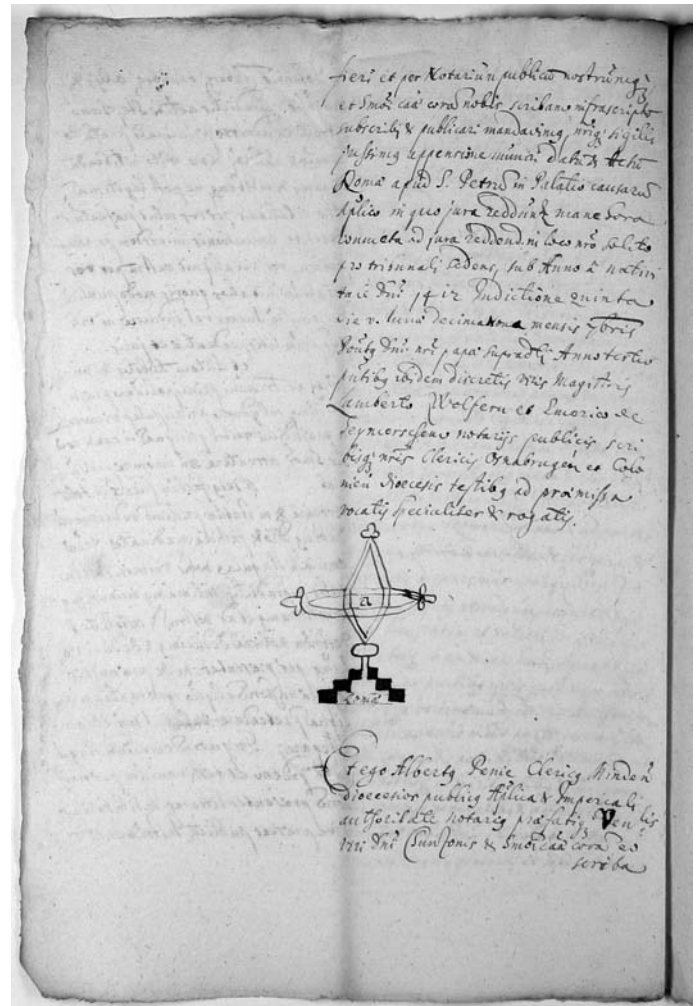 fieri et per Notariũ publicũ nostrũ
et cora nobis scribam infrascriptũ
subscribi & publicari mandavimq, sigilli
jussimq appensione muniri datũ & Actũ
Romæ apud S. Petrũ in Palatio causarũ
Aplico in quo jura reddunt mane hora
consueta ad jura reddend. in loco nrõ solito
pro tribunali sedens, sub Anno â nativi
tate Dnĩ Indictione quinta
die v. lunæ decimanona mensis 7bris
Dnĩ nrĩ papæ Anno tertio
ibidem discretis viris Magistris
Lamberto Wolfern et Emerico de
notarijs publicis scri
bisq; nrĩs Clericis Osnabrugeñ et Colo
nieñ dioecesis testibq ad præmissa
vocatis specialiter & rogatis.
a
Romæ
Et ego Albertq Penie Clericq Mindeñ
dioecesios publicq Aplica & Imperiali
authoritate notariq Ven lis
viri Dnĩ Cunzonis & cora eo
scriba